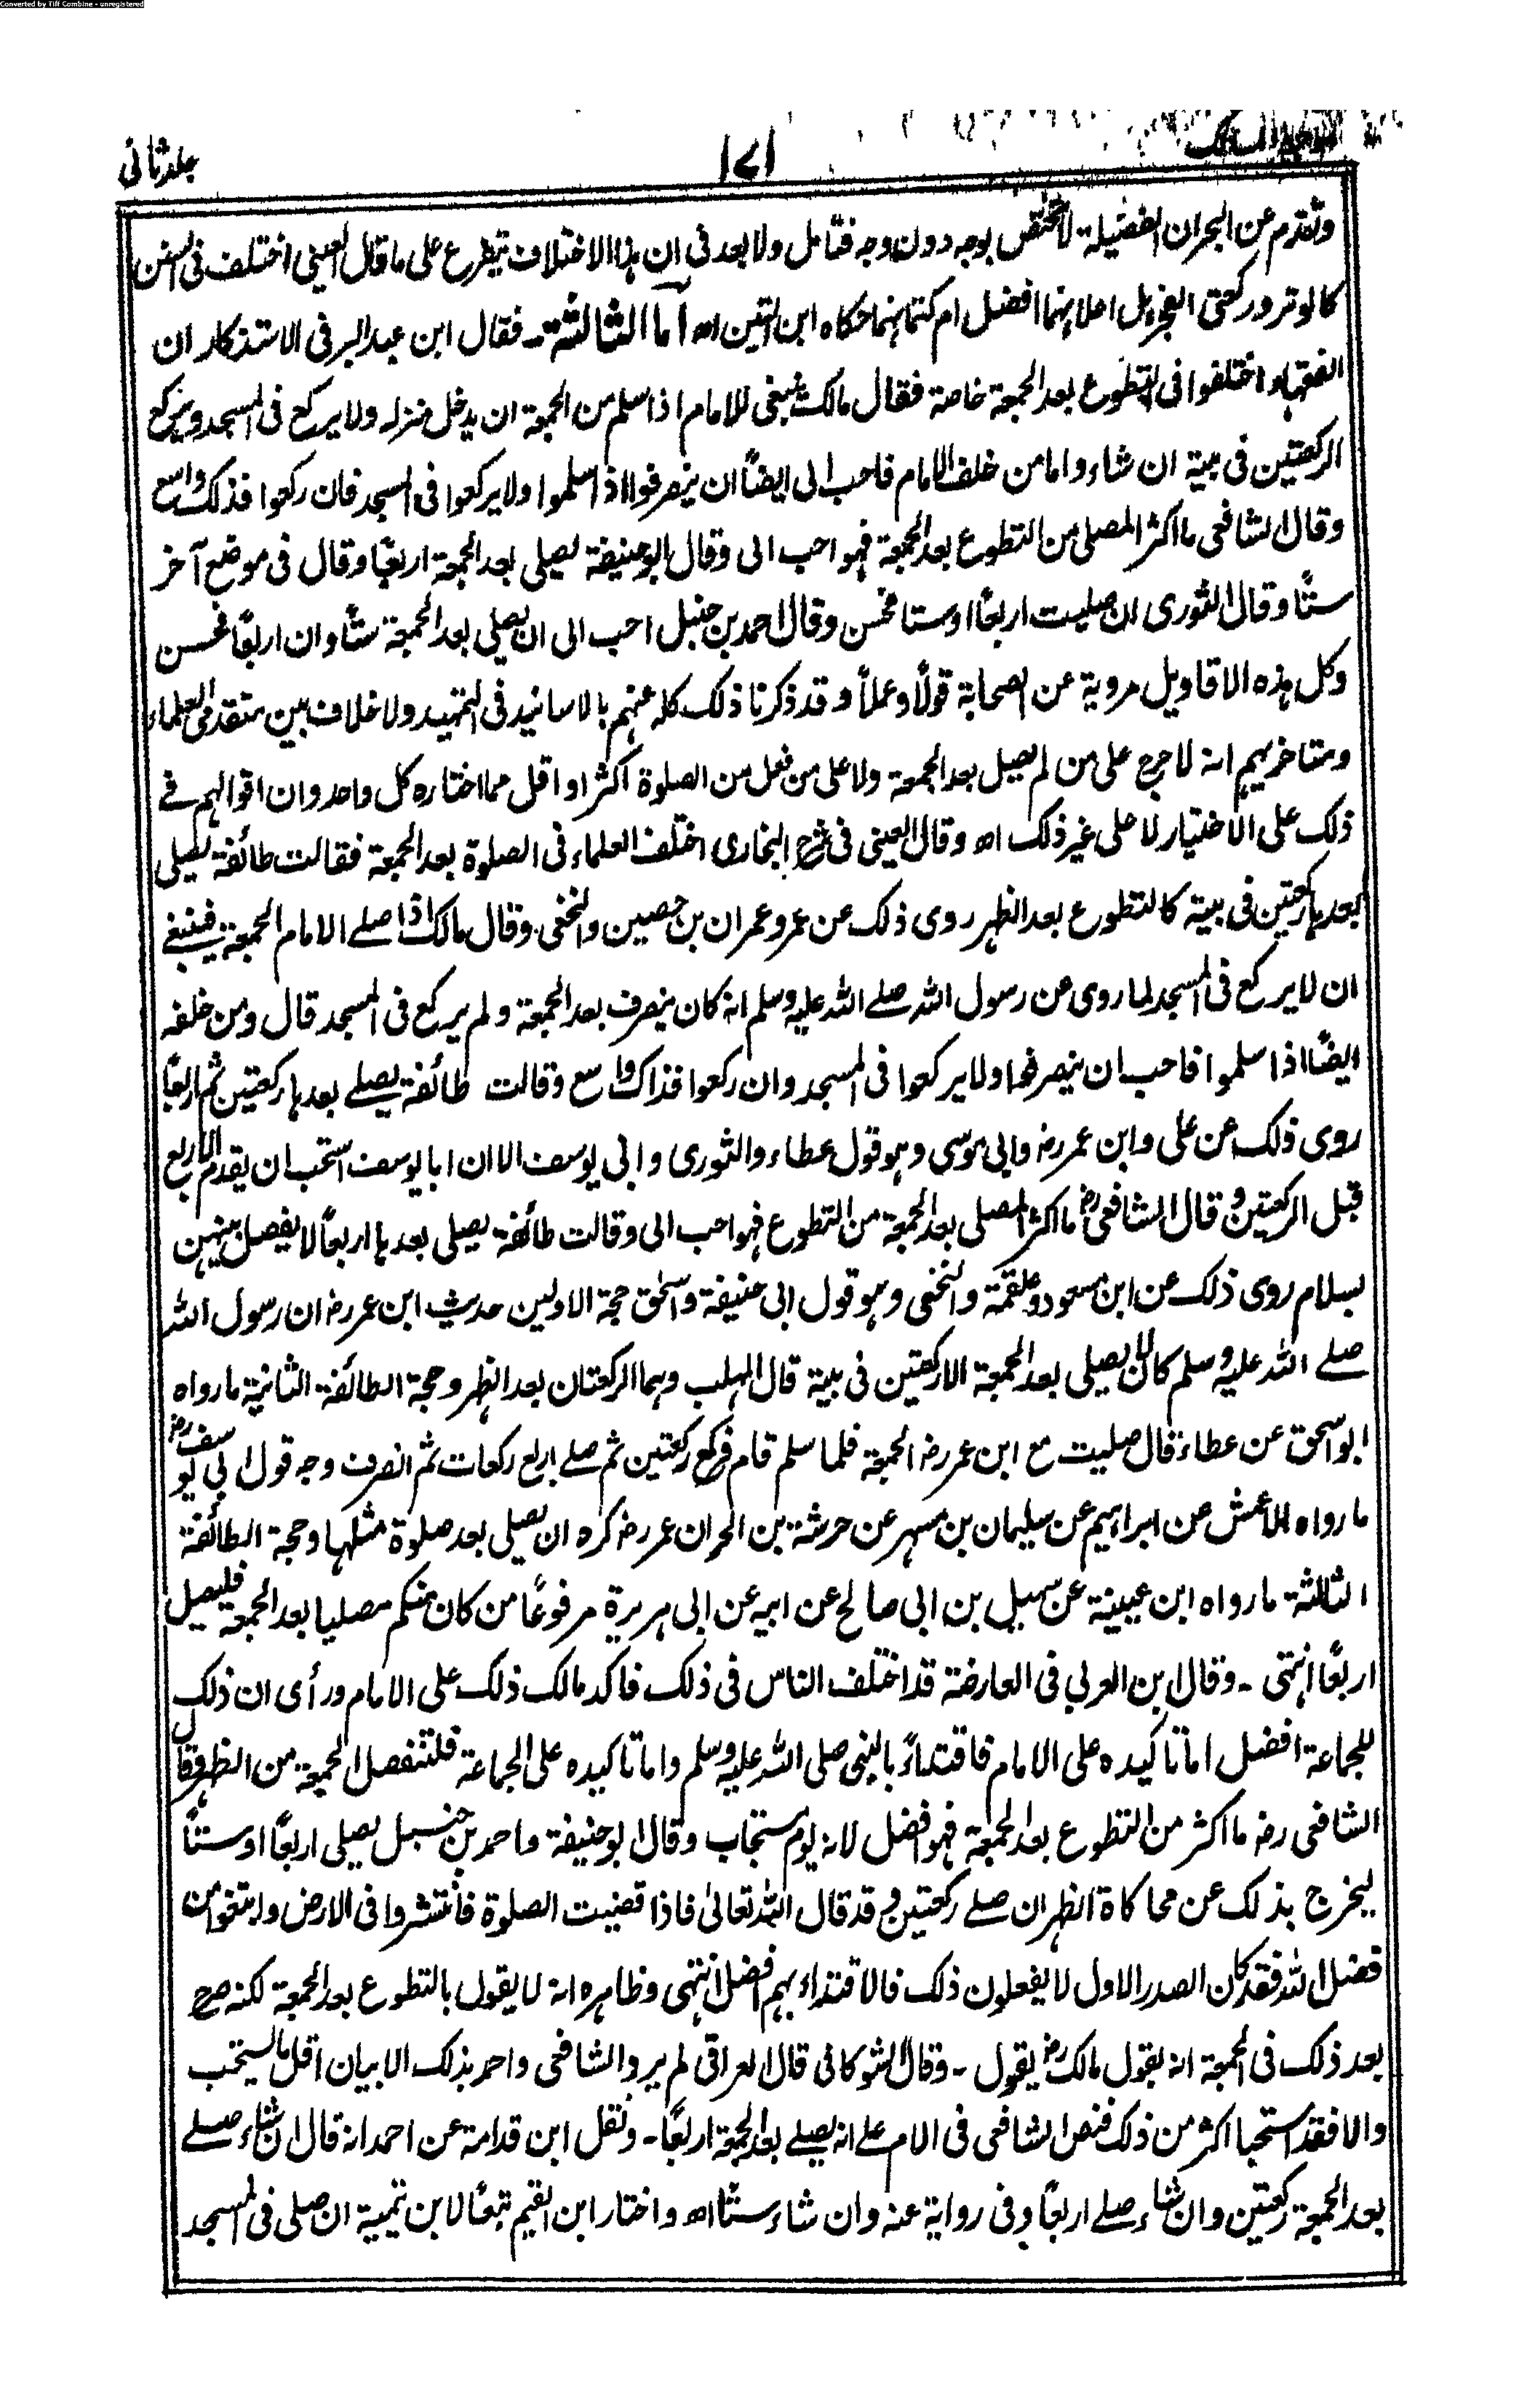 Converted by Tiff Combine - unregistered
جلد ثانی
۱۷۱
وتقدم عن البحر ان الفضيلة لا تختص بوجه دون وجه فتامل ولا بعد في ان هذا الاختلاف يتفرع على ما قال العيني اختلف في السنن
كالوتر وركعتي الفجر هل اعلانهما افضل ام كتمانهما حكاه ابن التين اه اما الثالثة۔ فقال ابن عبد البر في الاستذكار ان
الفقهاء اختلفوا في التطوع بعد الجمعة خاصة فقال مالك ينبغي للامام اذا سلم من الجمعة ان يدخل منزله ولا يركع في المسجد ويركع
الركعتين في بيته ان شاء واما من خلف الامام فاحب الى ايضًا ان ينصرفوا اذا سلموا ولا يركعوا في المسجد فان ركعوا فذلك واسع
وقال الشافعي ما اكثر المصلي من التطوع بعد الجمعة فهو احب الى وقال ابو حنيفة يصلي بعد الجمعة اربعًا وقال في موضع آخر
ستًا وقال الثوري ان صليت اربعًا او ستا فحسن وقال احمد بن حنبل احب الى ان يصلي بعد الجمعة ستًا وان اربعًا فحسن
وكل هذه الاقاويل مروية عن الصحابة قولًا وعملًا وقد ذكرنا ذلك كله عنهم بالاسانيد في التمهيد ولا خلاف بين متقدمي العلماء
ومتاخريهم انه لا حرج على من لم يصل بعد الجمعة ولا على من فعل من الصلوة اكثر او اقل مما اختاره كل واحد وان اقوالهم في
ذلك على الاختيار لا على غير ذلك اه وقال العيني في شرح البخاري اختلف العلماء في الصلوة بعد الجمعة فقالت طائفة يصلي
بعدها ركعتين في بيته كالتطوع بعد الظهر روى ذلك عن عمر وعمران بن حصين والنخعي وقال مالك اذا صلے الامام الجمعة فينبغي
ان لا يركع في المسجد لما روى عن رسول الله صلے الله عليه وسلم انه كان ينصرف بعد الجمعة ولم يركع في المسجد قال ومن خلفه
ايضًا اذا سلموا فاحب ان ينصرفوا ولا يركعوا في المسجد وان ركعوا فذاك واسع وقالت طائفة يصلے بعدها ركعتين ثم اربعًا
روى ذلك عن علي وابن عمر رضه وابي موسى وهو قول عطاء والثوري وابي يوسف الا ان ابا يوسف استحب ان يقدم الاربع
قبل الركعتين وقال الشافعي رضه ما اكثر المصلي بعد الجمعة من التطوع فهو احب الى وقالت طائفة يصلي بعدها اربعًا لا يفصل بينهن
بسلام روى ذلك عن ابن مسعود وعلقمة والنخعي وهو قول ابي حنيفة واسحق حجة الاولين حديث ابن عمر رضه ان رسول الله
صلے الله عليه وسلم كان لا يصلي بعد الجمعة الا ركعتين في بيته قال المهلب وهما الركعتان بعد الظهر وحجة الطائفة الثانية ما رواه
ابو اسحق عن عطاء قال صليت مع ابن عمر رضه الجمعة فلما سلم قام فركع ركعتين ثم صلے اربع ركعات ثم انصرف وجه قول ابي يوسف رضه
ما رواه الاعمش عن ابراهيم عن سليمان بن مسهر عن حرشة بن الحر ان عمر رضه كره ان يصلي بعد صلوة مثلها وحجة الطائفة
الثالثة ما رواه ابن عيينة عن سهيل بن ابي صالح عن ابيه عن ابي هريرة مرفوعًا من كان منكم مصليا بعد الجمعة فليصل
اربعًا انتهى۔ وقال ابن العربي في العارضة قد اختلف الناس في ذلك فاكد مالك ذلك على الامام ورأى ان ذلك
للجماعة افضل اما تاكيده على الامام فاقتداءً بالنبي صلى الله عليه وسلم واما تاكيده على الجماعة فلتنفصل الجمعة من الظهر وقال
الشافعي رضه ما اكثر من التطوع بعد الجمعة فهو افضل لانه يوم مستجاب وقال ابو حنيفة واحمد بن حنبل يصلي اربعًا او ستًا
ليخرج بذلك عن محاكاة الظهر ان صلے ركعتين وقد قال الله تعالى فاذا قضيت الصلوة فانتشروا في الارض وابتغوا من
فضل الله فقد كان الصدر الاول لا يفعلون ذلك فالاقتداء بهم افضل انتهى وظاهره انه لا يقول بالتطوع بعد الجمعة لكنه صرح
بعد ذلك في الجمعة انه بقول مالك رضه يقول۔ وقال الشوكاني قال العراقي لم يرد الشافعي واحمد بذلك الا بيان اقل ما يستحب
والا فقد استحبا اكثر من ذلك فنص الشافعي في الام علے انه يصلے بعد الجمعة اربعًا۔ ونقل ابن قدامة عن احمد انه قال ان شاء صلے
بعد الجمعة ركعتين وان شاء صلے اربعًا وفي رواية عنه وان شاء ستًا اه واختار ابن القيم تبعًا لابن تيمية ان صلى في المسجد